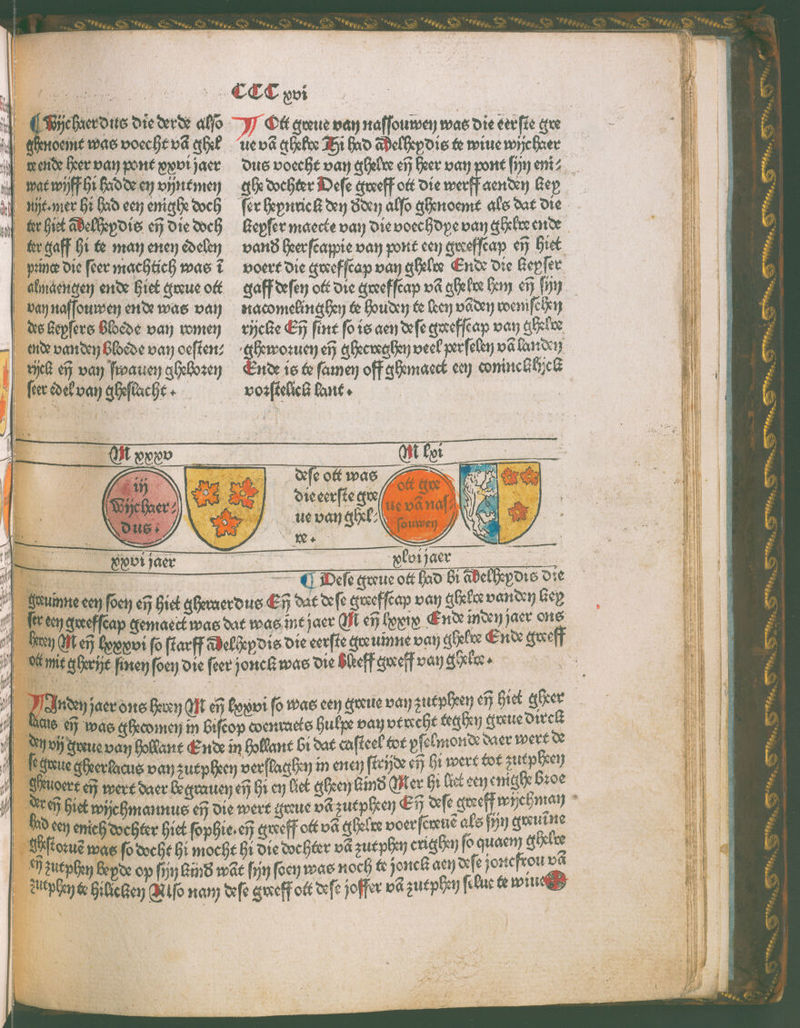 CCC xvi
¶ Wijchaerdus die derde also
ghenoemt was voecht vā ghel
re ende heer van pont xxvi jaer
wat wijff hi hadde en vijnt men
nijt. mer hi had een enighe doch
ter hiet Adelheydis eñ die doch
ter gaff hi te man enen edelen
prince die seer machtich was ī
almaengen ende hiet greue ott
van nassouwen ende was van
des keysers bloede van romen
ende vanden bloede van oesten-
rijck eñ van swauen gheboren
seer edel van gheslacht .
¶ Ott greue van nassouwen was die eerste gre
ue vā ghelre Hi had adelheydis te wiue wijchaer
dus voecht van ghelre eñ heer van pont sijn eni-
ghe dochter Dese greeff ott die werff aenden key
ser heynrick den derden also ghenoemt als dat die
keyser maecte van die voechdye van ghelre ende
vand heerscappie van pont een greeffscap eñ hiet
voert die greefscap van ghelre Ende die keyser
gaff desen ott die greefscap vā ghelre hem eñ sijn
nacomelinghen te houden te leen vāden roemschen
rijcke Eñ sint so is aen dese greefscap van ghelre
gheworuen eñ ghecreghen veel perselen vā landen
Ende is te samen off ghemaect een conincklijck
vorstelick lant .
M xxxv
M lxi
iij
Wijchaer-
dus.
dese ott was
die eerste gre
ue van ghel-
re .
ott gre
ue vā nas-
souwen
xxvi jaer
xlvi jaer
¶ Dese greue ott had bi adelheydis die
greuinne een soen eñ hiet gheraerdus Eñ dat dese greefscap van ghelre vanden key
ser een greeffscap gemaect was dat was int jaer M eñ lxxix Ende inden jaer ons
heren M eñ lxxxvi so starff adelheydis die eerste greuinne van ghelre Ende greeff
ott mit gherijt sinen soen die seer jonck was die bleeff greeff van ghelre .
¶ Inden jaer ons heren M eñ lxxvi so was een greue van zutpheen eñ hiet gheer
lacus eñ was ghecomen in biscop coenraets hulpe van vtrecht teghen greue dirck
den vij greue van hollant Ende in hollant bi dat casteel tot yselmonde daer wert de
se greue gheerlacus van zutpheen verslaghen in enen strijde eñ hi wert tot zutpheen
gheuoert eñ wert daer begrauen eñ hi en liet gheen kind Mer hi liet een enighe broe
der eñ hiet wijchmannus eñ die wert greue vā zutphen Eñ dese greeff wijchman
had een enich dochter hiet sophie. eñ greeff ott vā ghelre voerscreuē als sijn greuine
ghestoruē was so docht hi mocht hi die dochter vā zutphen crighen so quaem ghelre
eñ zutphen beyde op sijn kind wāt sijn soen was noch te jonck aen dese joncfrou vā
zutphen te hilicken Also nam dese greeff ott dese joffer vā zutphen selue te wiue